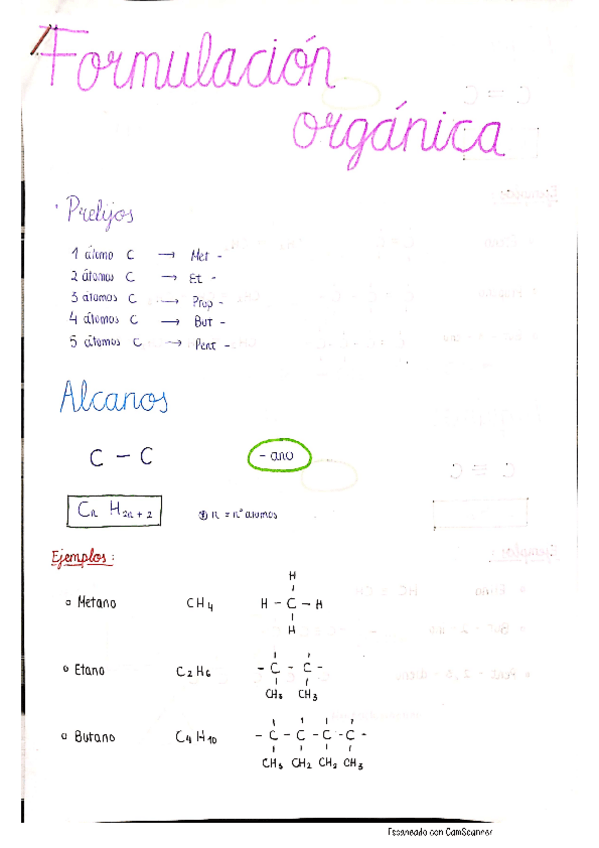 Formulación
orgánica
Prefijos
1 átomo C → Met -
2 átomos C → Et -
3 átomos C → Prop -
4 átomos C → But -
5 átomos C → Pent -
Alcanos
C - C - ano
Cn H2n + 2 n = nº átomos
Ejemplos:
H
Metano CH4 H - C - H
H
Etano C2H6 - C - C -
CH3 CH3
Butano C4H10 - C - C - C - C -
CH3 CH2 CH2 CH3
Escaneado con CamScanner